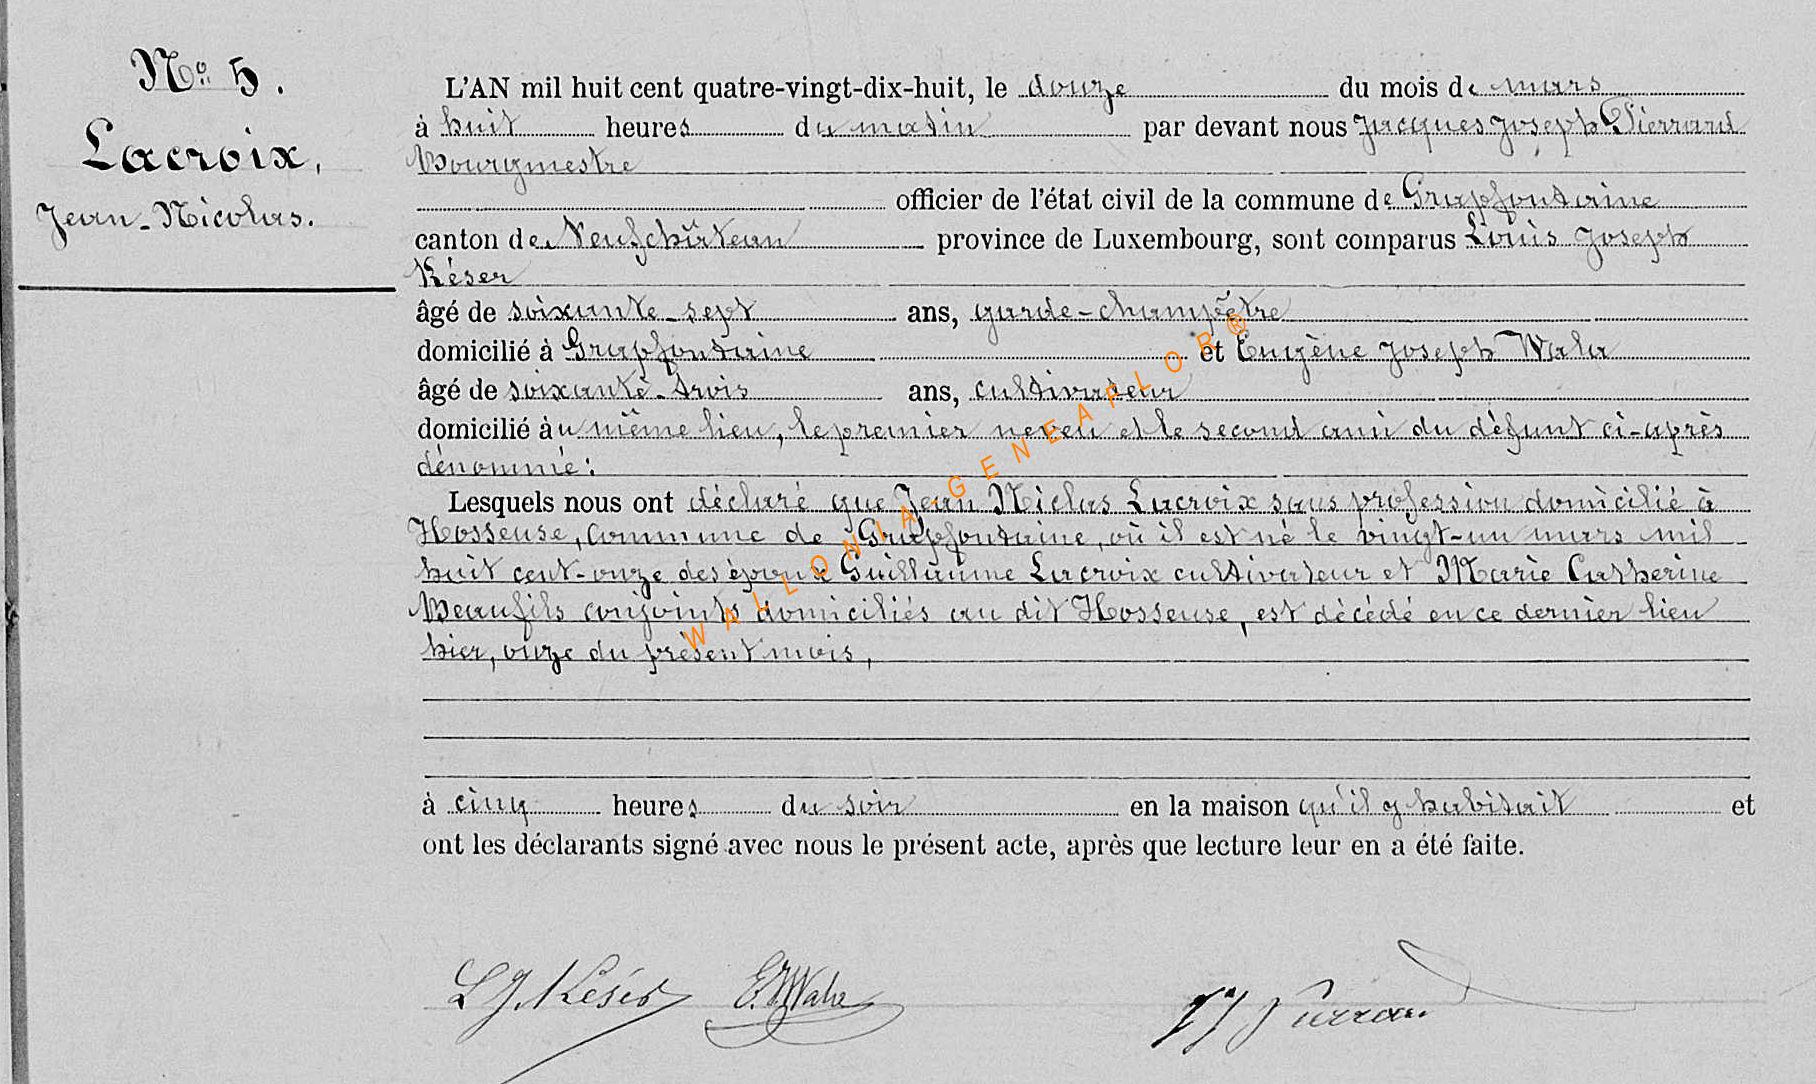 No 5.
Lacroix,
Jean-Nicolas.
L'AN mil huit cent quatre-vingt-dix-huit, le douze du mois de mars
à huit heures du matin par devant nous Jacques Joseph Pierrard
Bourgmestre
officier de l'état civil de la commune de Grapfontaine
canton de Neufchâteau province de Luxembourg, sont comparus Louis Joseph
Késer
âgé de soixante-sept ans, garde-champêtre
domicilié à Grapfontaine et Eugène Joseph Wala
âgé de soixante-trois ans, cultivateur
domicilié au même lieu, le premier neveu et le second ami du défunt ci-après
dénommé:
Lesquels nous ont déclaré que Jean Niclas Lacroix sans profession domicilié à
Hosseuse, commune de Grapfontaine, où il est né le vingt-un mars mil
huit cent-onze des époux Guillaume Lacroix cultivateur et Marie Catherine
Beaufils conjoints domiciliés au dit Hosseuse, est décédé en ce dernier lieu
hier, onze du présent mois,
à cinq heures du soir en la maison qu'il y habitait et
ont les déclarants signé avec nous le présent acte, après que lecture leur en a été faite.
L J. Késer E. J Wala J J Pierrard
WALLONIA-GENEAPLOR®